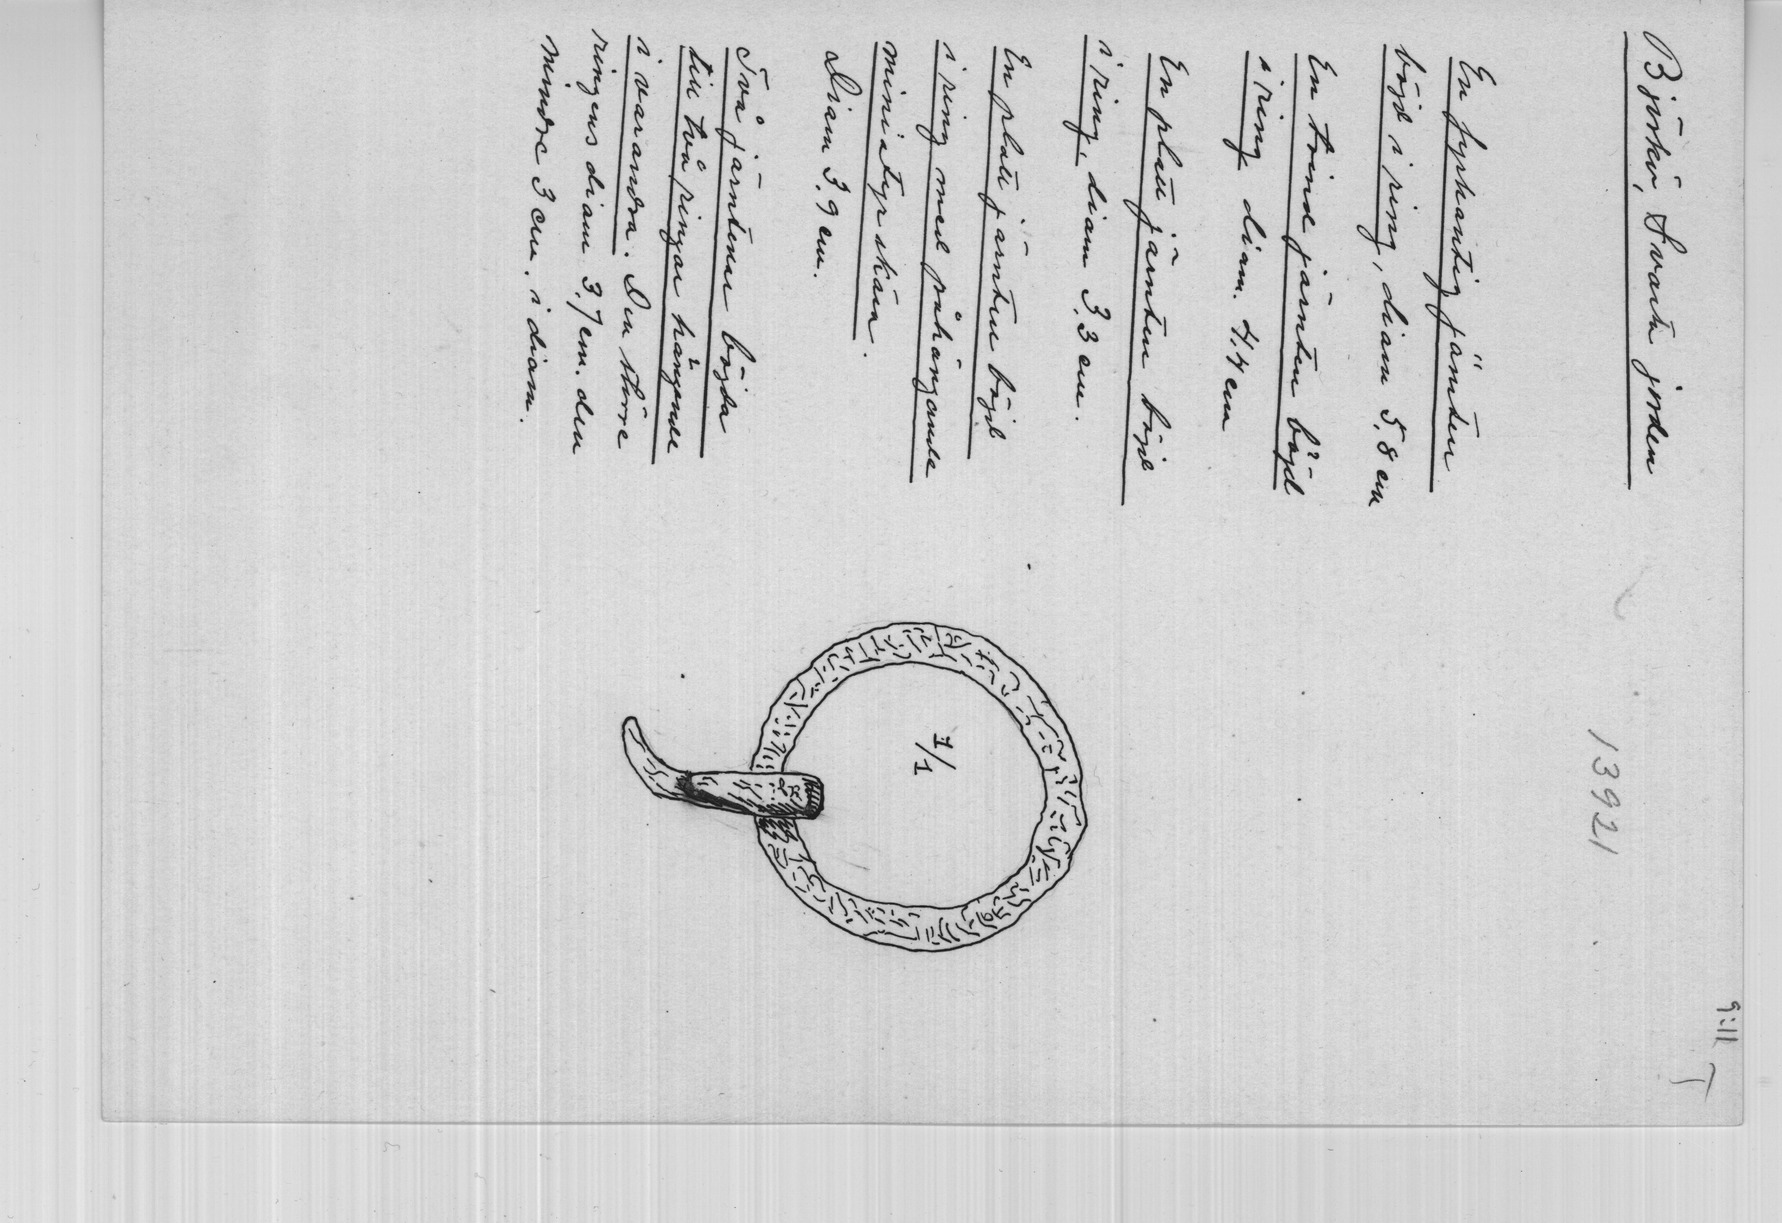 9:11 T
Björkö, Svarta jorden
13921
En fyrkantig järnten
böjd i ring, diam 5,8 cm
En trind järnten böjd
i ring diam. 4,4 cm
En platt järnten böjd
i ring, diam 3,3 cm.
En platt järnten böjd
i ring med påhängande
miniatyrskära.
Diam 3,9 cm.
Två järntenar böjda
till två ringar hängande
i varandra. Den större
ringens diam 3,7 cm. den
mindre 3 cm. i diam.
1/1